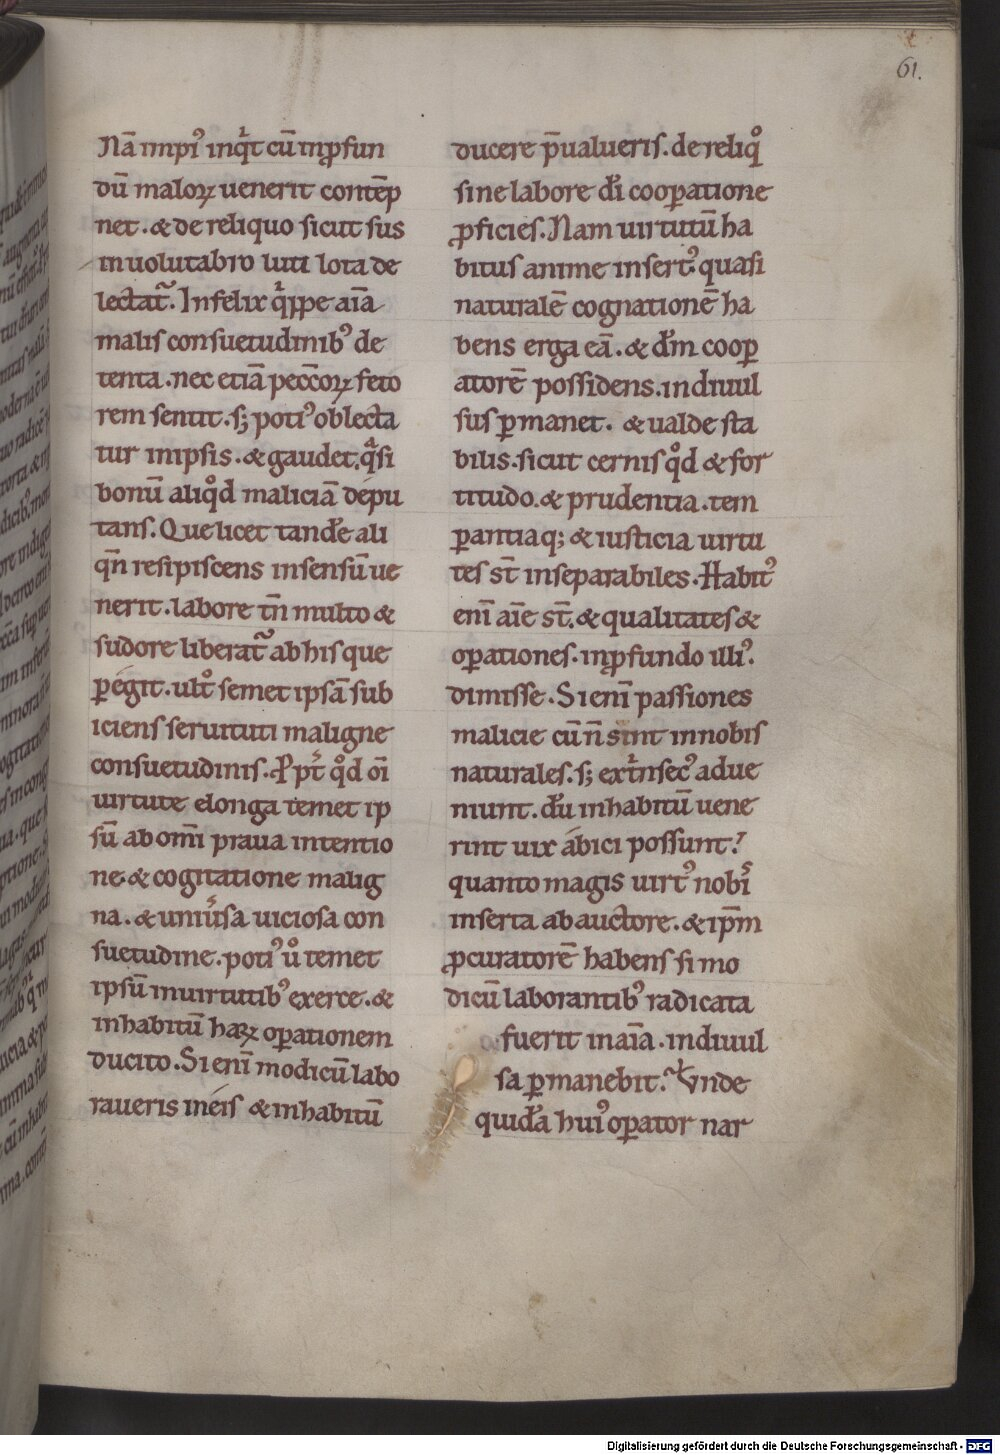 61.
Nā impi᾽ inqͥt cū inꝓfun
dū maloꝝ uenerit contēp
net. & de reliquo sicut sus
in uolutabro luti lota de
lectat᷑. Infelix qͥppe aīa
malis consuetudinib᾽ de
tenta. nec etiā peccōꝝ feto
rem sentit. s; poti᾽ oblecta
tur in ipsis. & gaudet. qͣsi
bonū aliqͦd maliciā depu
tans. Que licet tandē ali
qn̄ resipiscens in sensū ue
nerit. labore tn̄ multo &
sudore liberat᷑ ab his que
ꝑegit. ultͦ semet ipsā sub
iciens seruituti maligne
consuetudinis. Ppt̄ qͦd oī
uirtute elonga temet ip
sū ab om̄i praua intentio
ne & cogitatione malig
na. & uniu᷑sa uiciosa con
suetudine. poti᾽ uͦ temet
ipsū in uirtutib᾽ exerce. &
in habitū haꝝ oꝑationem
ducito. Si enī modicū labo
raueris in eis & in habitū
ducere p̄ualueris. de reliqͦ
sine labore dī cooꝑatione
ꝓficies. Nam uirtutū ha
bitus anime insert᾽ quasi
naturalē cognationē ha
bens erga eā. & dm̄ cooꝑ
atorē possidens. indiuul
sus ꝑmanet. & ualde sta
bilis. sicut cernis qͦd & for
titudo. & prudentia. tem
ꝑantiaq; & iusticia uirtu
tes st̄ inseparabiles. Habit᾽
enī aīe st̄. & qualitates &
oꝑationes. in ꝓfundo illi᾽.
dimisse. Si enī passiones
malicie cū n̄ sint in nobis
naturales. s; extͥnsec᾽ adue
niunt. dū in habitū uene
rint uix abici possunt?
quanto magis uirt᾽ nobͥ
inserta ab auctore. & ip̄m
ꝓcuratorē habens si mo
dicū laborantib᾽ radicata
fuerit in aīa. indiuul
sa ꝑmanebit. Vnde
quidā hui᾽ oꝑator nar
Digitalisierung gefördert durch die Deutsche Forschungsgemeinschaft - DFG